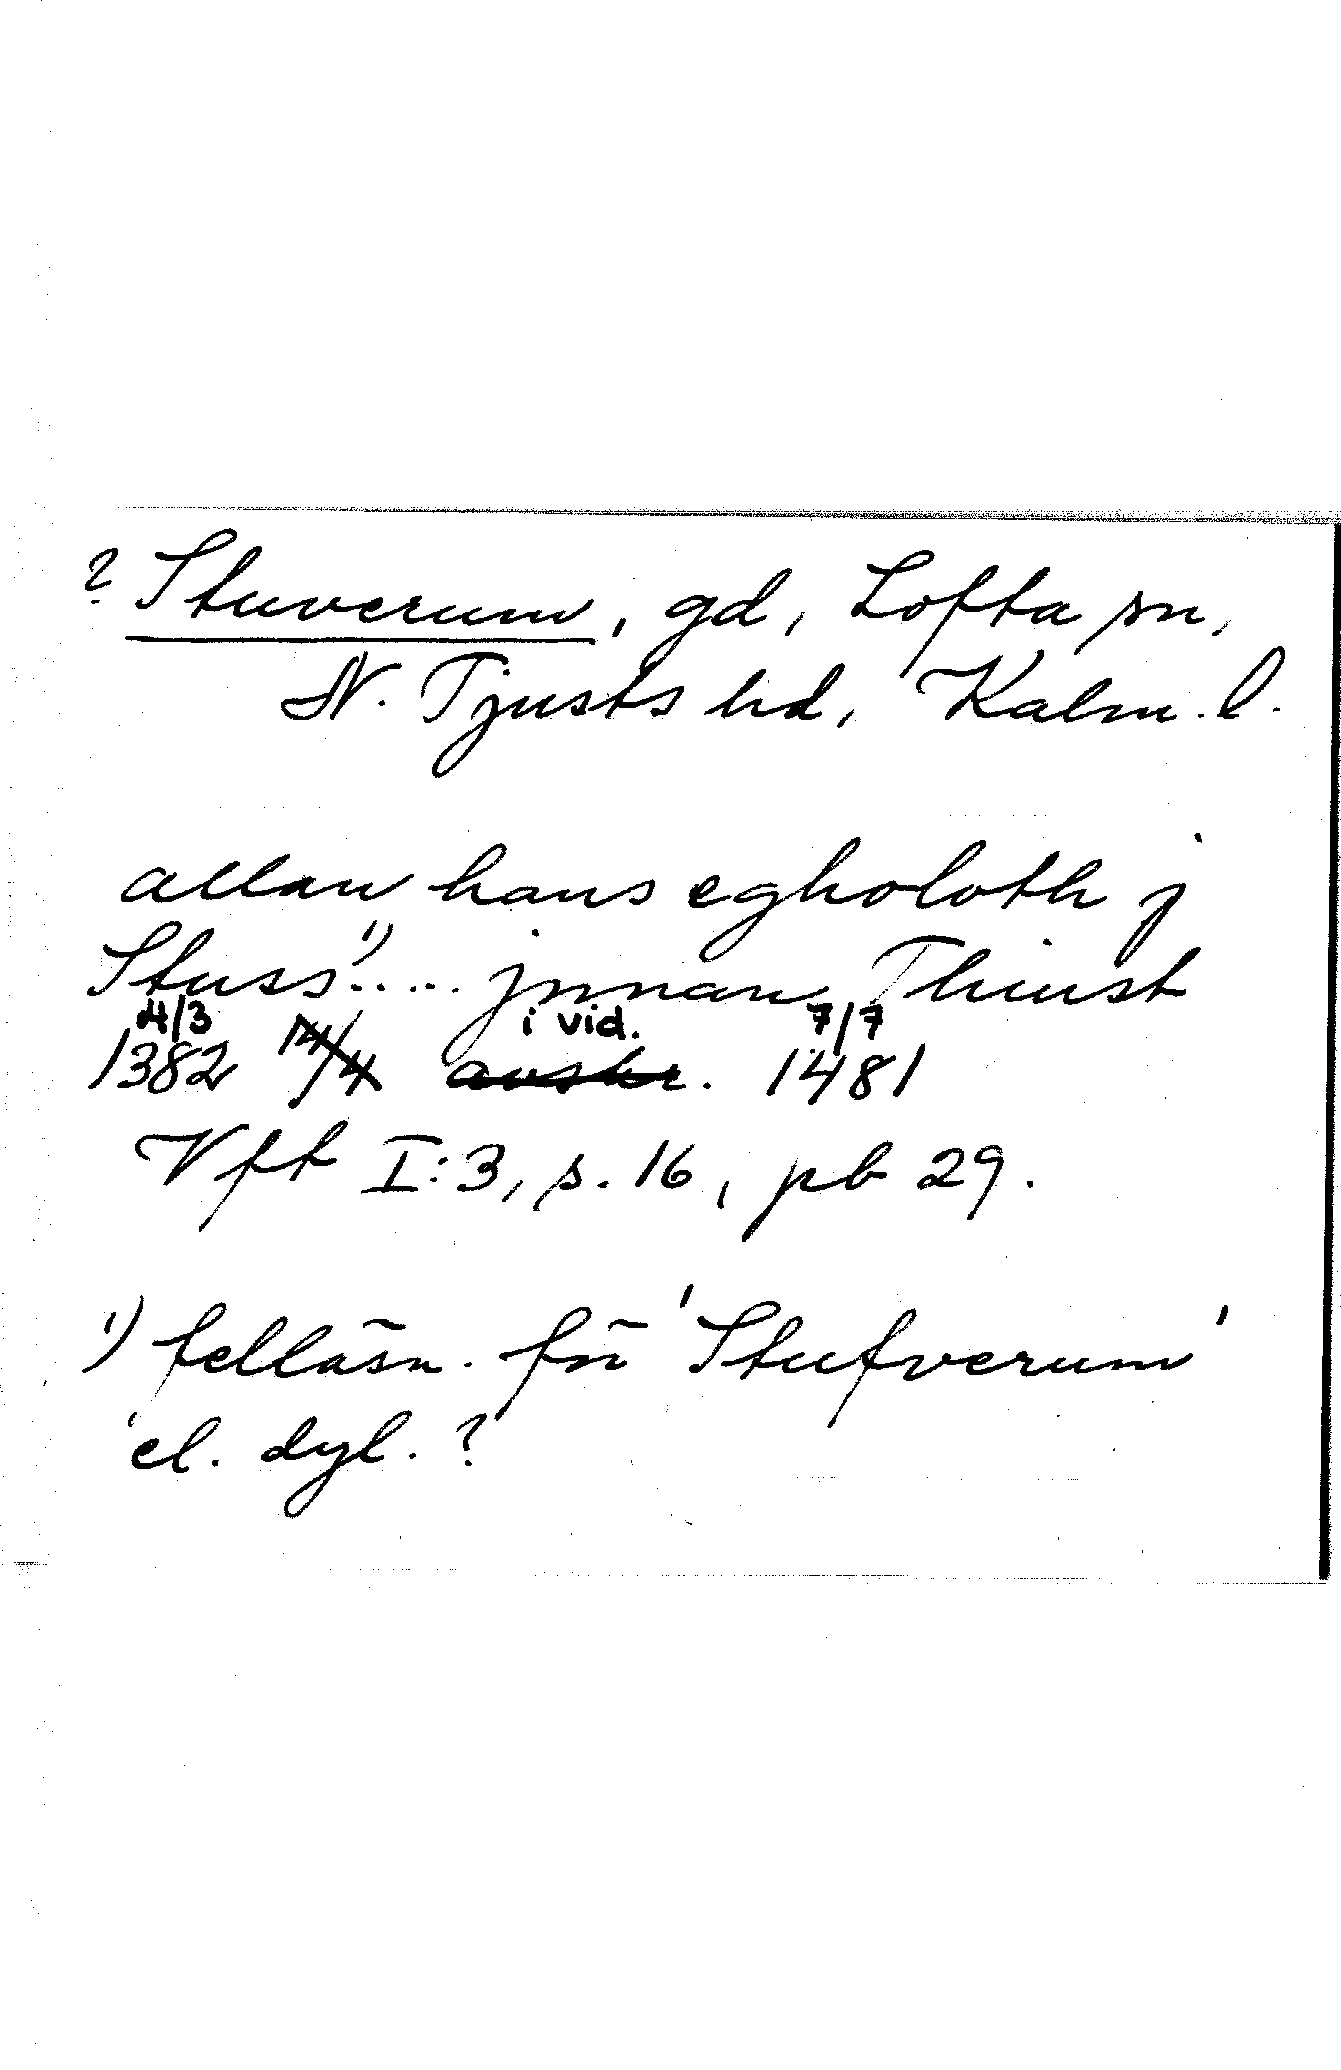 ? Stuverum, gd, Lofta sn,
N. Tjusts hd, Kalm. l.
allan hans egholoth j
Stuss¹)..... jnnan Thiust
4/3 i vid. 7/7
1382 14/4 avskr. 1481
Vft I:3, s. 16, pb 29.
¹) felläsn. för 'Stufverum'
el. dyl. ?